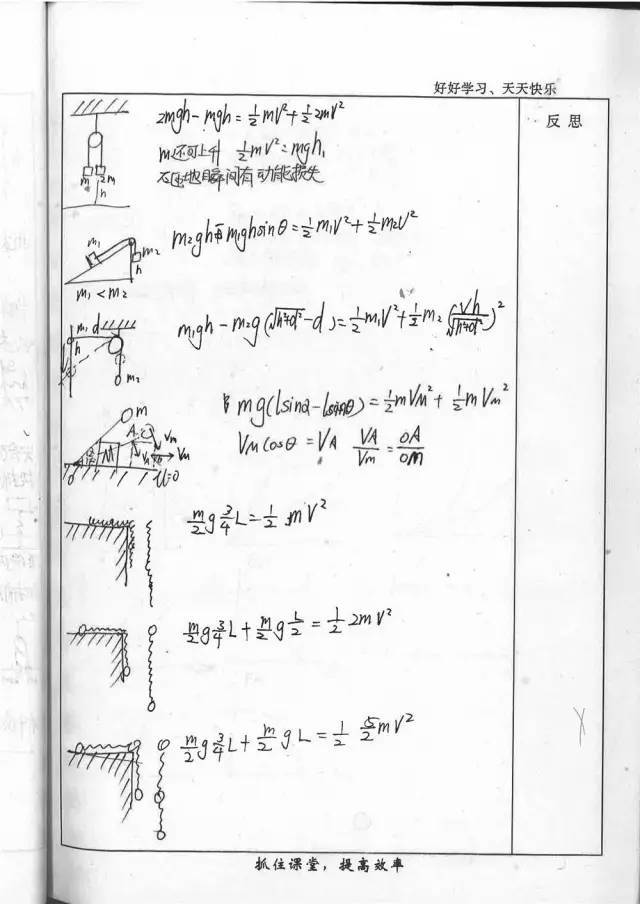 好好学习、天天快乐
反思
2mgh-mgh=½mV²+½2mV²
m还可上升 ½mV²=mgh₁
地瞬间有动能损失
m 2m
h
m₂gh-m₁ghsinθ=½m₁V²+½m₂V²
m₁ m₂
h
m₁<m₂
m₁gh-m₂g(√(h²+d²)-d)=½m₁V²+½m₂(Vh/√(h²+d²))²
m₁ d
h
m₂
mg(Lsinα-Lsinθ)=½mVm²+½mVM²
VMcosθ=VA VA/Vm=OA/OM
m
A
M
VM
O
μ=0
m/2 g 3/4 L=½mV²
m/2 g 3/4 L+m/2 g L/2=½2mV²
m/2 g 3/4 L+m/2 gL=½ 5/2 mV²
抓住课堂，提高效率